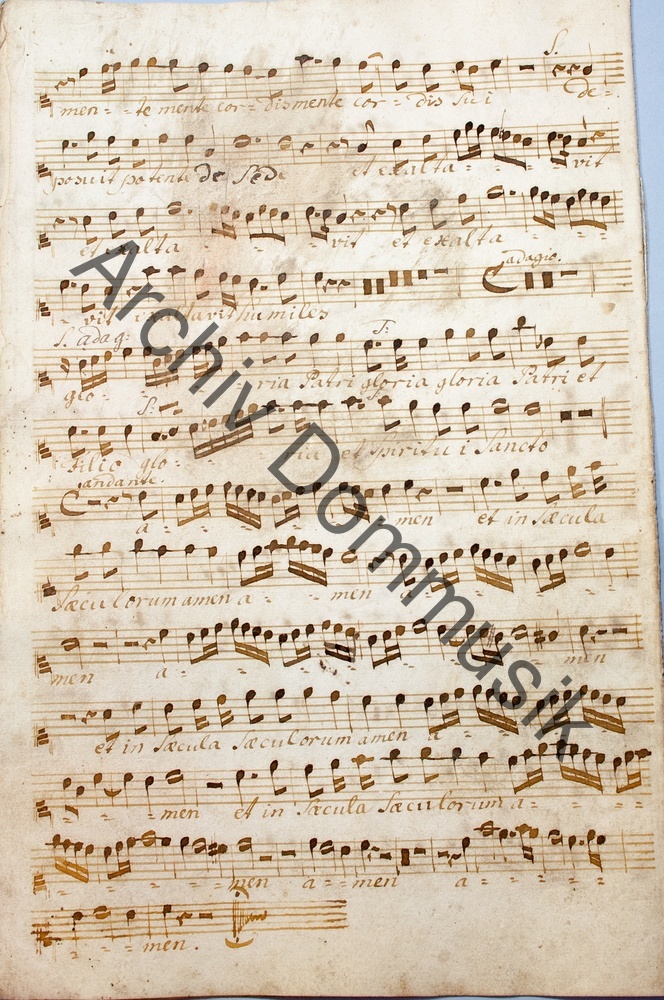 S.
men - - te mente cor - dis mente cor - - dis sui de -
posuit potente de Sede et exalta - - - vit
et exalta - - - vit et exalta - - -
adagio.
vit exaltavit humiles
S. adag: T:
glo - - - ria Patri gloria gloria Patri et
S:
filio glo - - - ria et Spiritu i Sancto
andante.
a - - - - men et in Sæcula
Sæculorum amen a - - - men a - - -
men a - - - - men
et in Sæcula Sæculorum amen a - - -
- - - men et in Sæcula Sæculorum a - - -
- - - - men a - - men a - - -
- - - men.
Archiv Dommusik